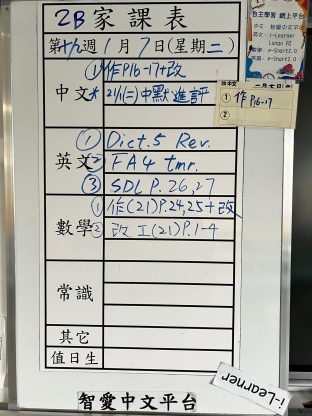 2B 家課表
第十九週 1月7日(星期二)
中文
①作P.16-17+改
* 21/1(二)中默進評
英文
① Dict.5 Rev.
② FA4 tmr.
③ SDL P.26,27
數學
① 作(21)P.24,25+改
② 改工(21)P.1-4
常識
其它
值日生
智愛中文平台
i-Learner
自主學習 網上平台
中文：智愛中文平台
英文：i-Learner
數學：e-Smart2.0
常識：e-Smart2.0
① 作 P.16-17
②